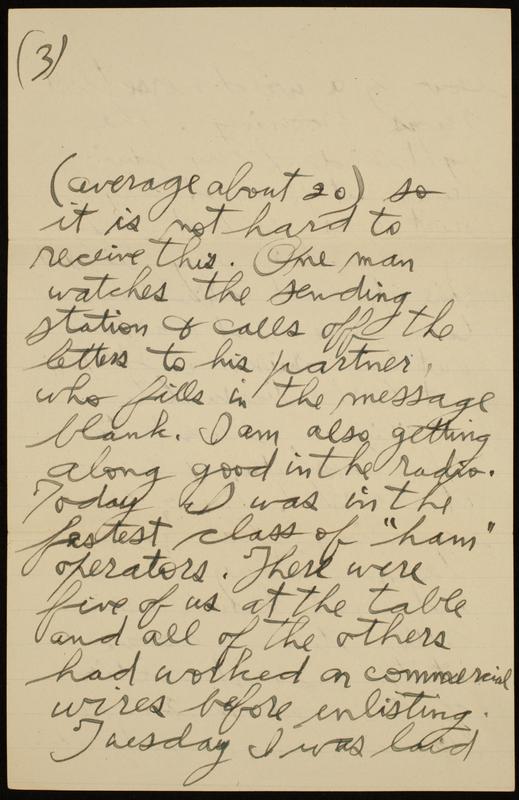 (3)
(average about 20) so
it is not hard to
receive this. One man
watches the sending
station & calls off the
letters to his partner,
who fills in the message
blank. I am also getting
along good in the radio.
Today I was in the
fastest class of "ham"
operators. There were
five of us at the table
and all of the others
had worked on commercial
wires before enlisting.
Tuesday I was laid